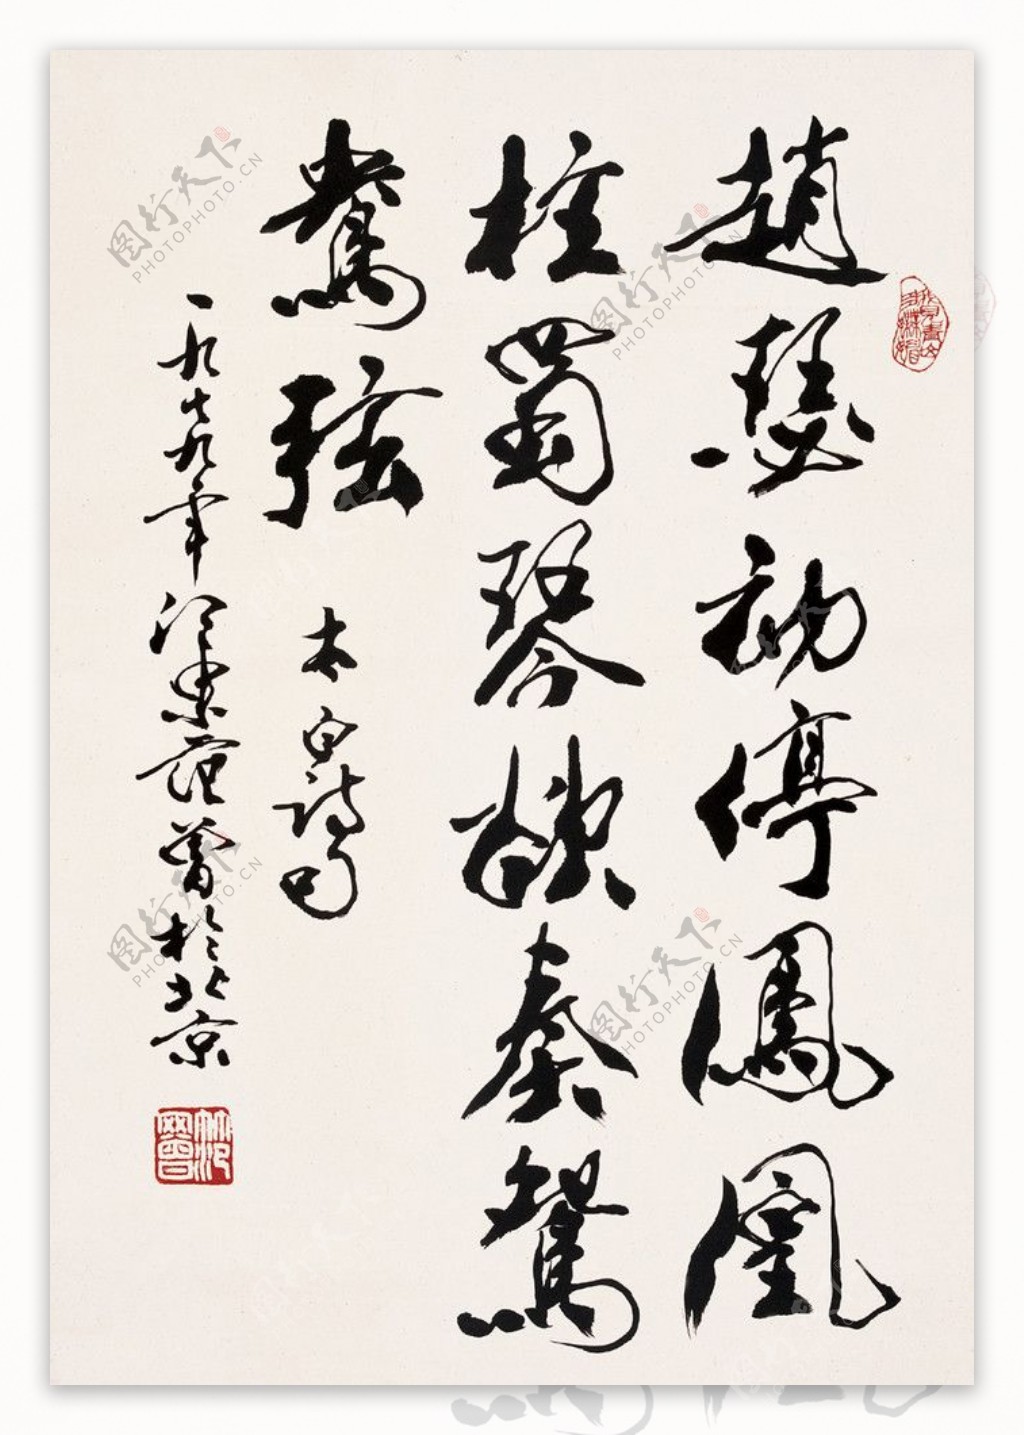 趙瑟初停鳳凰
柱蜀琴欲奏鴛
鴦弦
李白詩句
一九七九年江東范曾於北京
图行天下
PHOTOPHOTO.CN
图行天下
PHOTOPHOTO.CN
图行天下
PHOTOPHOTO.CN
图行天下
PHOTOPHOTO.CN